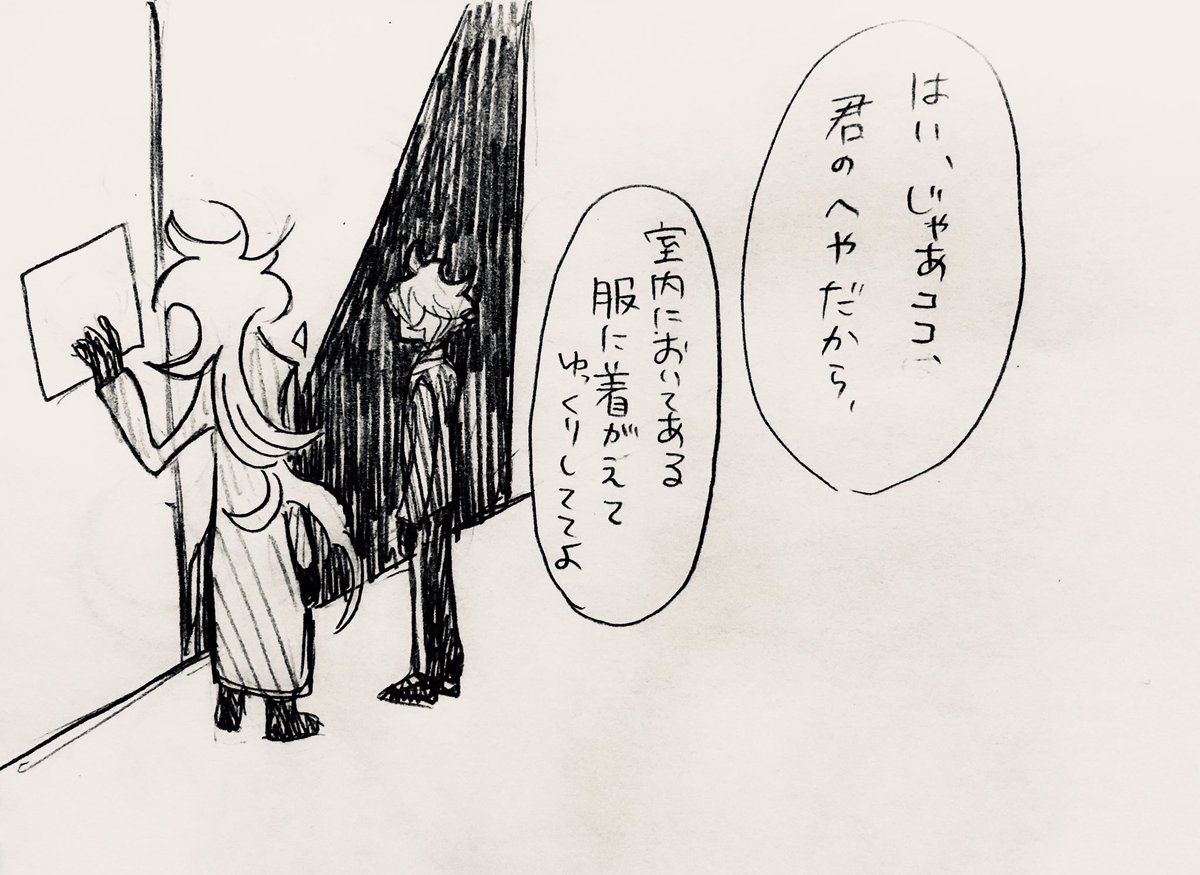 はい、じゃあココ、
君のへやだから、
室内においてある
服に着がえて
ゆっくりしててよ